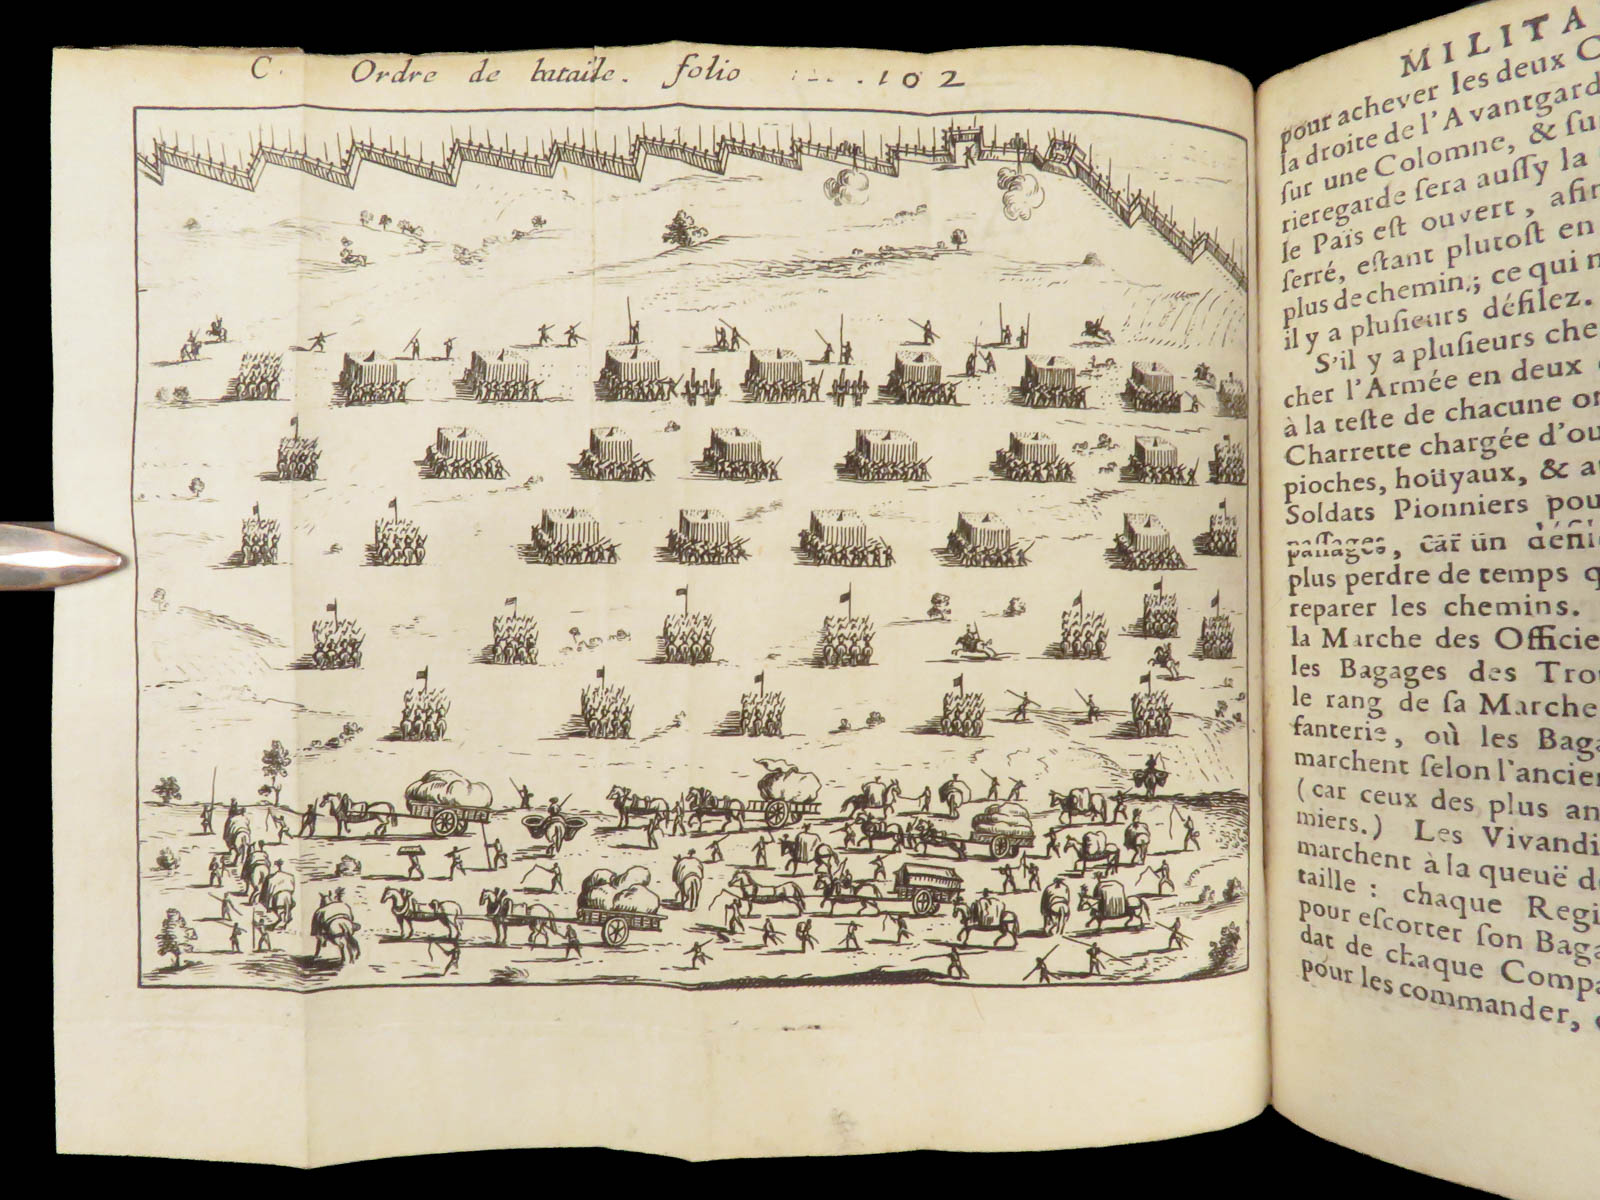 C. Ordre de bataile. folio 102
MILITA
pour achever les deux C
la droite de l'Avantgard
ſur une Colomne, & ſu
rieregarde ſera auſſy la
le Païs eſt ouvert, afin
ſerré, eſtant plutoſt en
plus de chemin; ce qui n
il y a pluſieurs défilez.
S'il y a pluſieurs che
cher l'Armée en deux
à la teſte de chacune
Charrette chargée d'ou
pioches, hoüyaux, & a
Soldats Pionniers pou
paſſages, car un défil
plus perdre de temps q
reparer les chemins.
la Marche des Officie
les Bagages des Tro
le rang de ſa Marche
fanterie, où les Baga
marchent ſelon l'ancien
(car ceux des plus an
miers.) Les Vivandi
marchent à la queuë d
taille : chaque Regi
pour eſcorter ſon Baga
dat de chaque Compa
pour les commander,